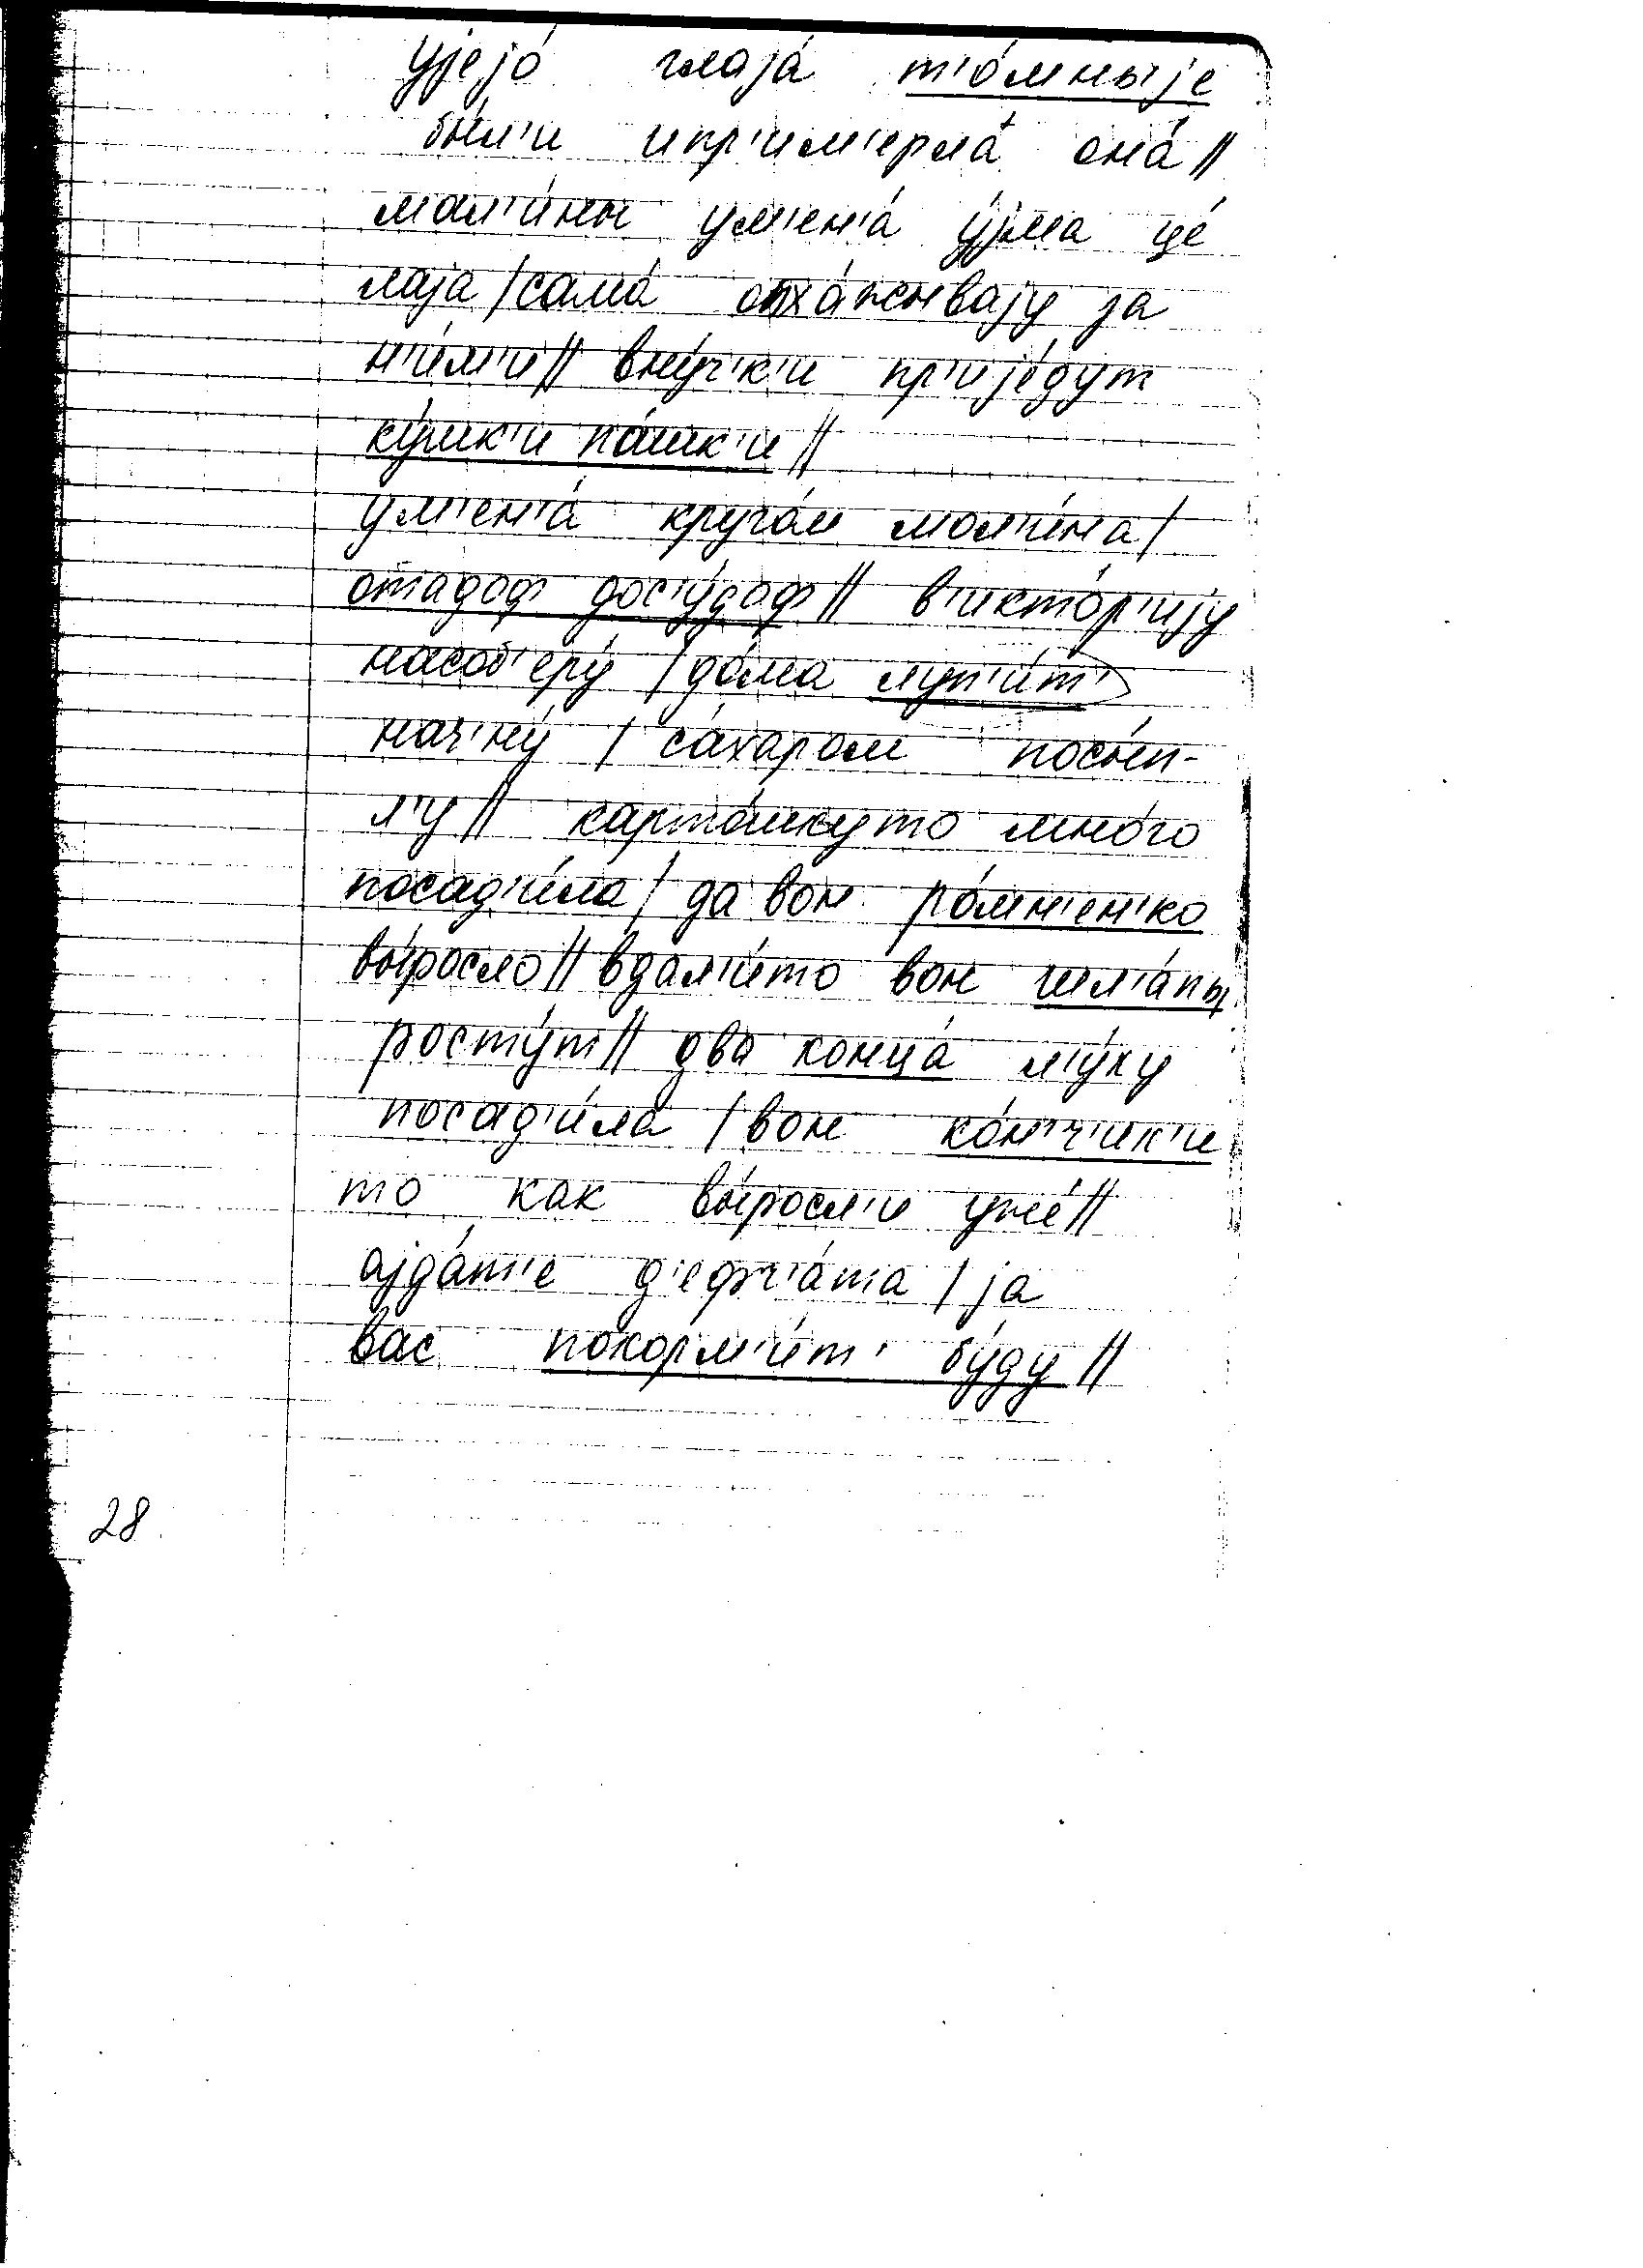 уjеjо́ глаjа́ т'о́мныjе
бы́л'и и пр'им'ерла́ она́ //
мал'и́ны ум'ен'а́ у́jма це́
лаjа / сама́ оха́жываjу за
н'и́м'и // вну́ч'к'и пр'иjе́дут
ку́шк'и па́шк'и //
ум'ен'а́ круго́м мал'и́на /
отадоф дос'у́доф // в'икто́р'иjу
насоб'еру́ / до́ма луп'и́т'
нач'ну́ / са́харом посы́п-
л'у // карто́шкуто мно́го
посад'и́ла / да вон ро́мн'ен'ко
вы́росло // вдал'и́то вон шл'а́пы
росту́т // два конца́ л'у́ку
посад'и́ла / вон ко́н'ч'ик'и
то как вы́росл'и уже́ //
аjда́т'е д'ефч'а́та / jа
вас покорм'и́т' бу́ду //
28.